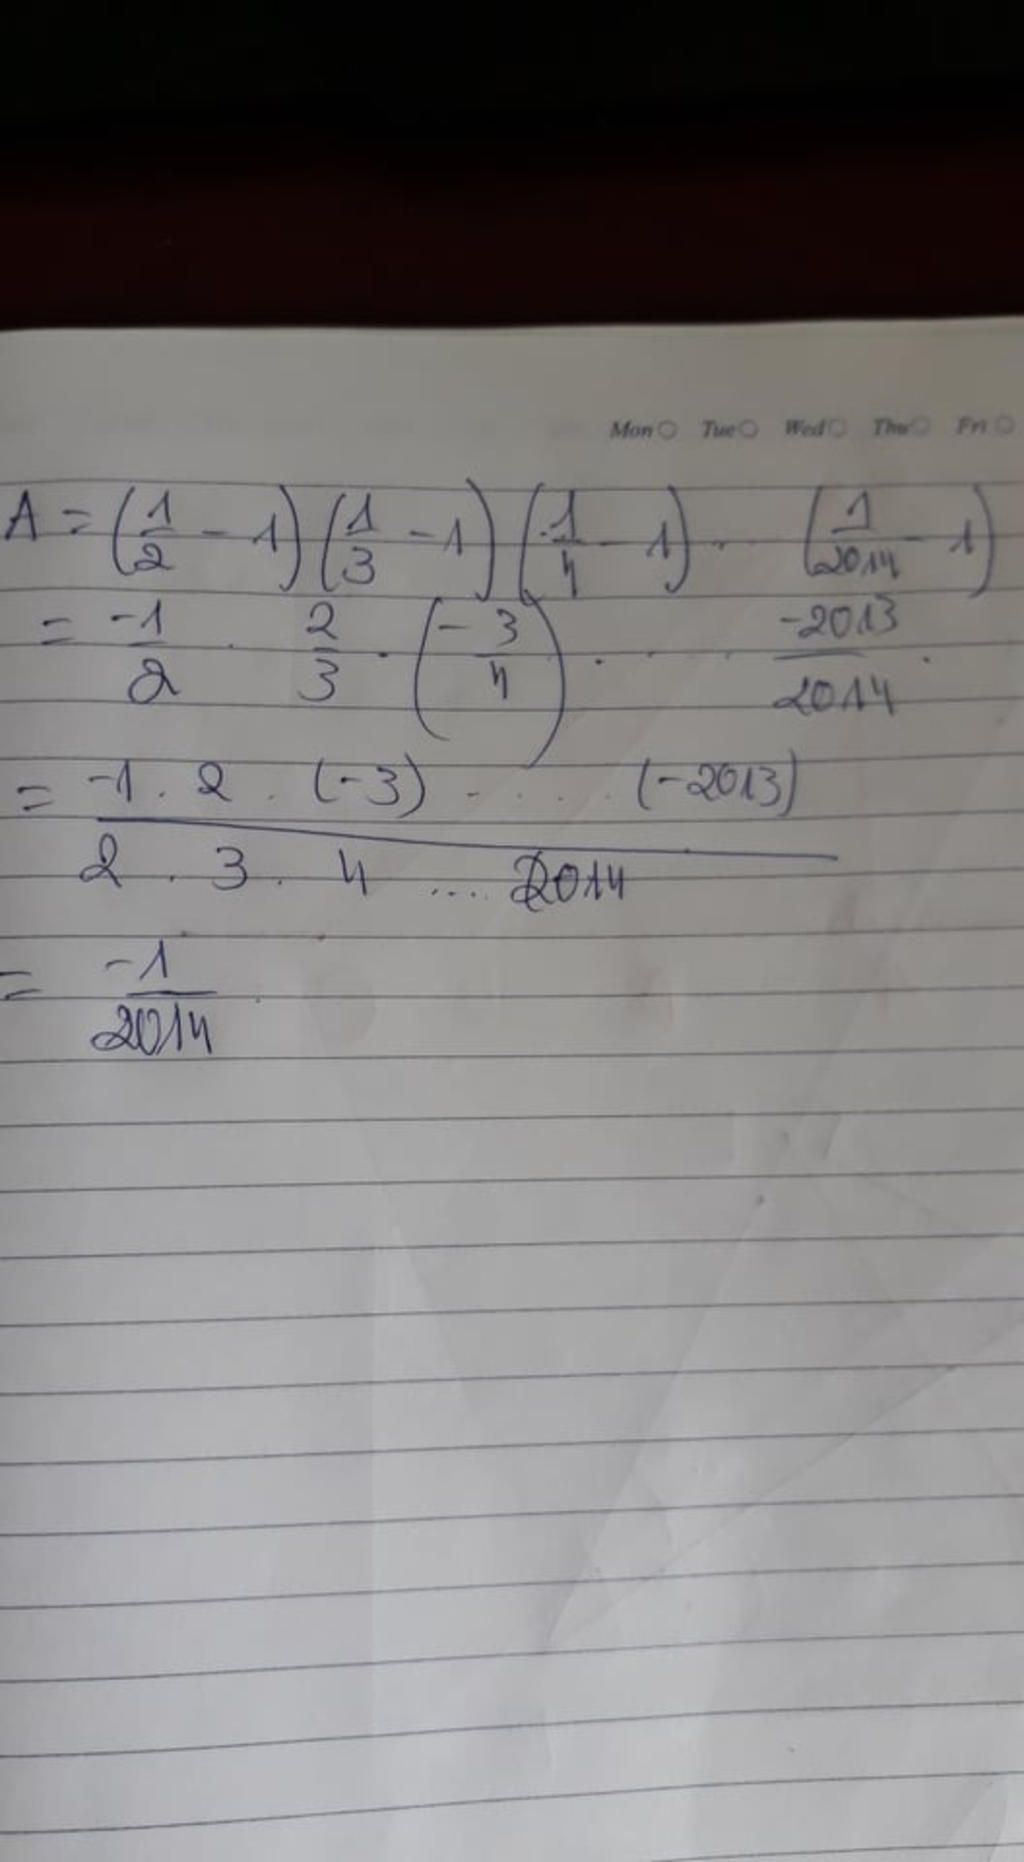 Mon Tue Wed Thu Fri
A = (1/2 - 1) (1/3 - 1) (1/4 - 1) ... (1/2014 - 1)
= -1/2 . 2/3 . (-3/4) . . . . -2013/2014 .
= -1 . 2 . (-3) - . . . (-2013)
2 . 3 . 4 .... 2014
= -1/2014 .